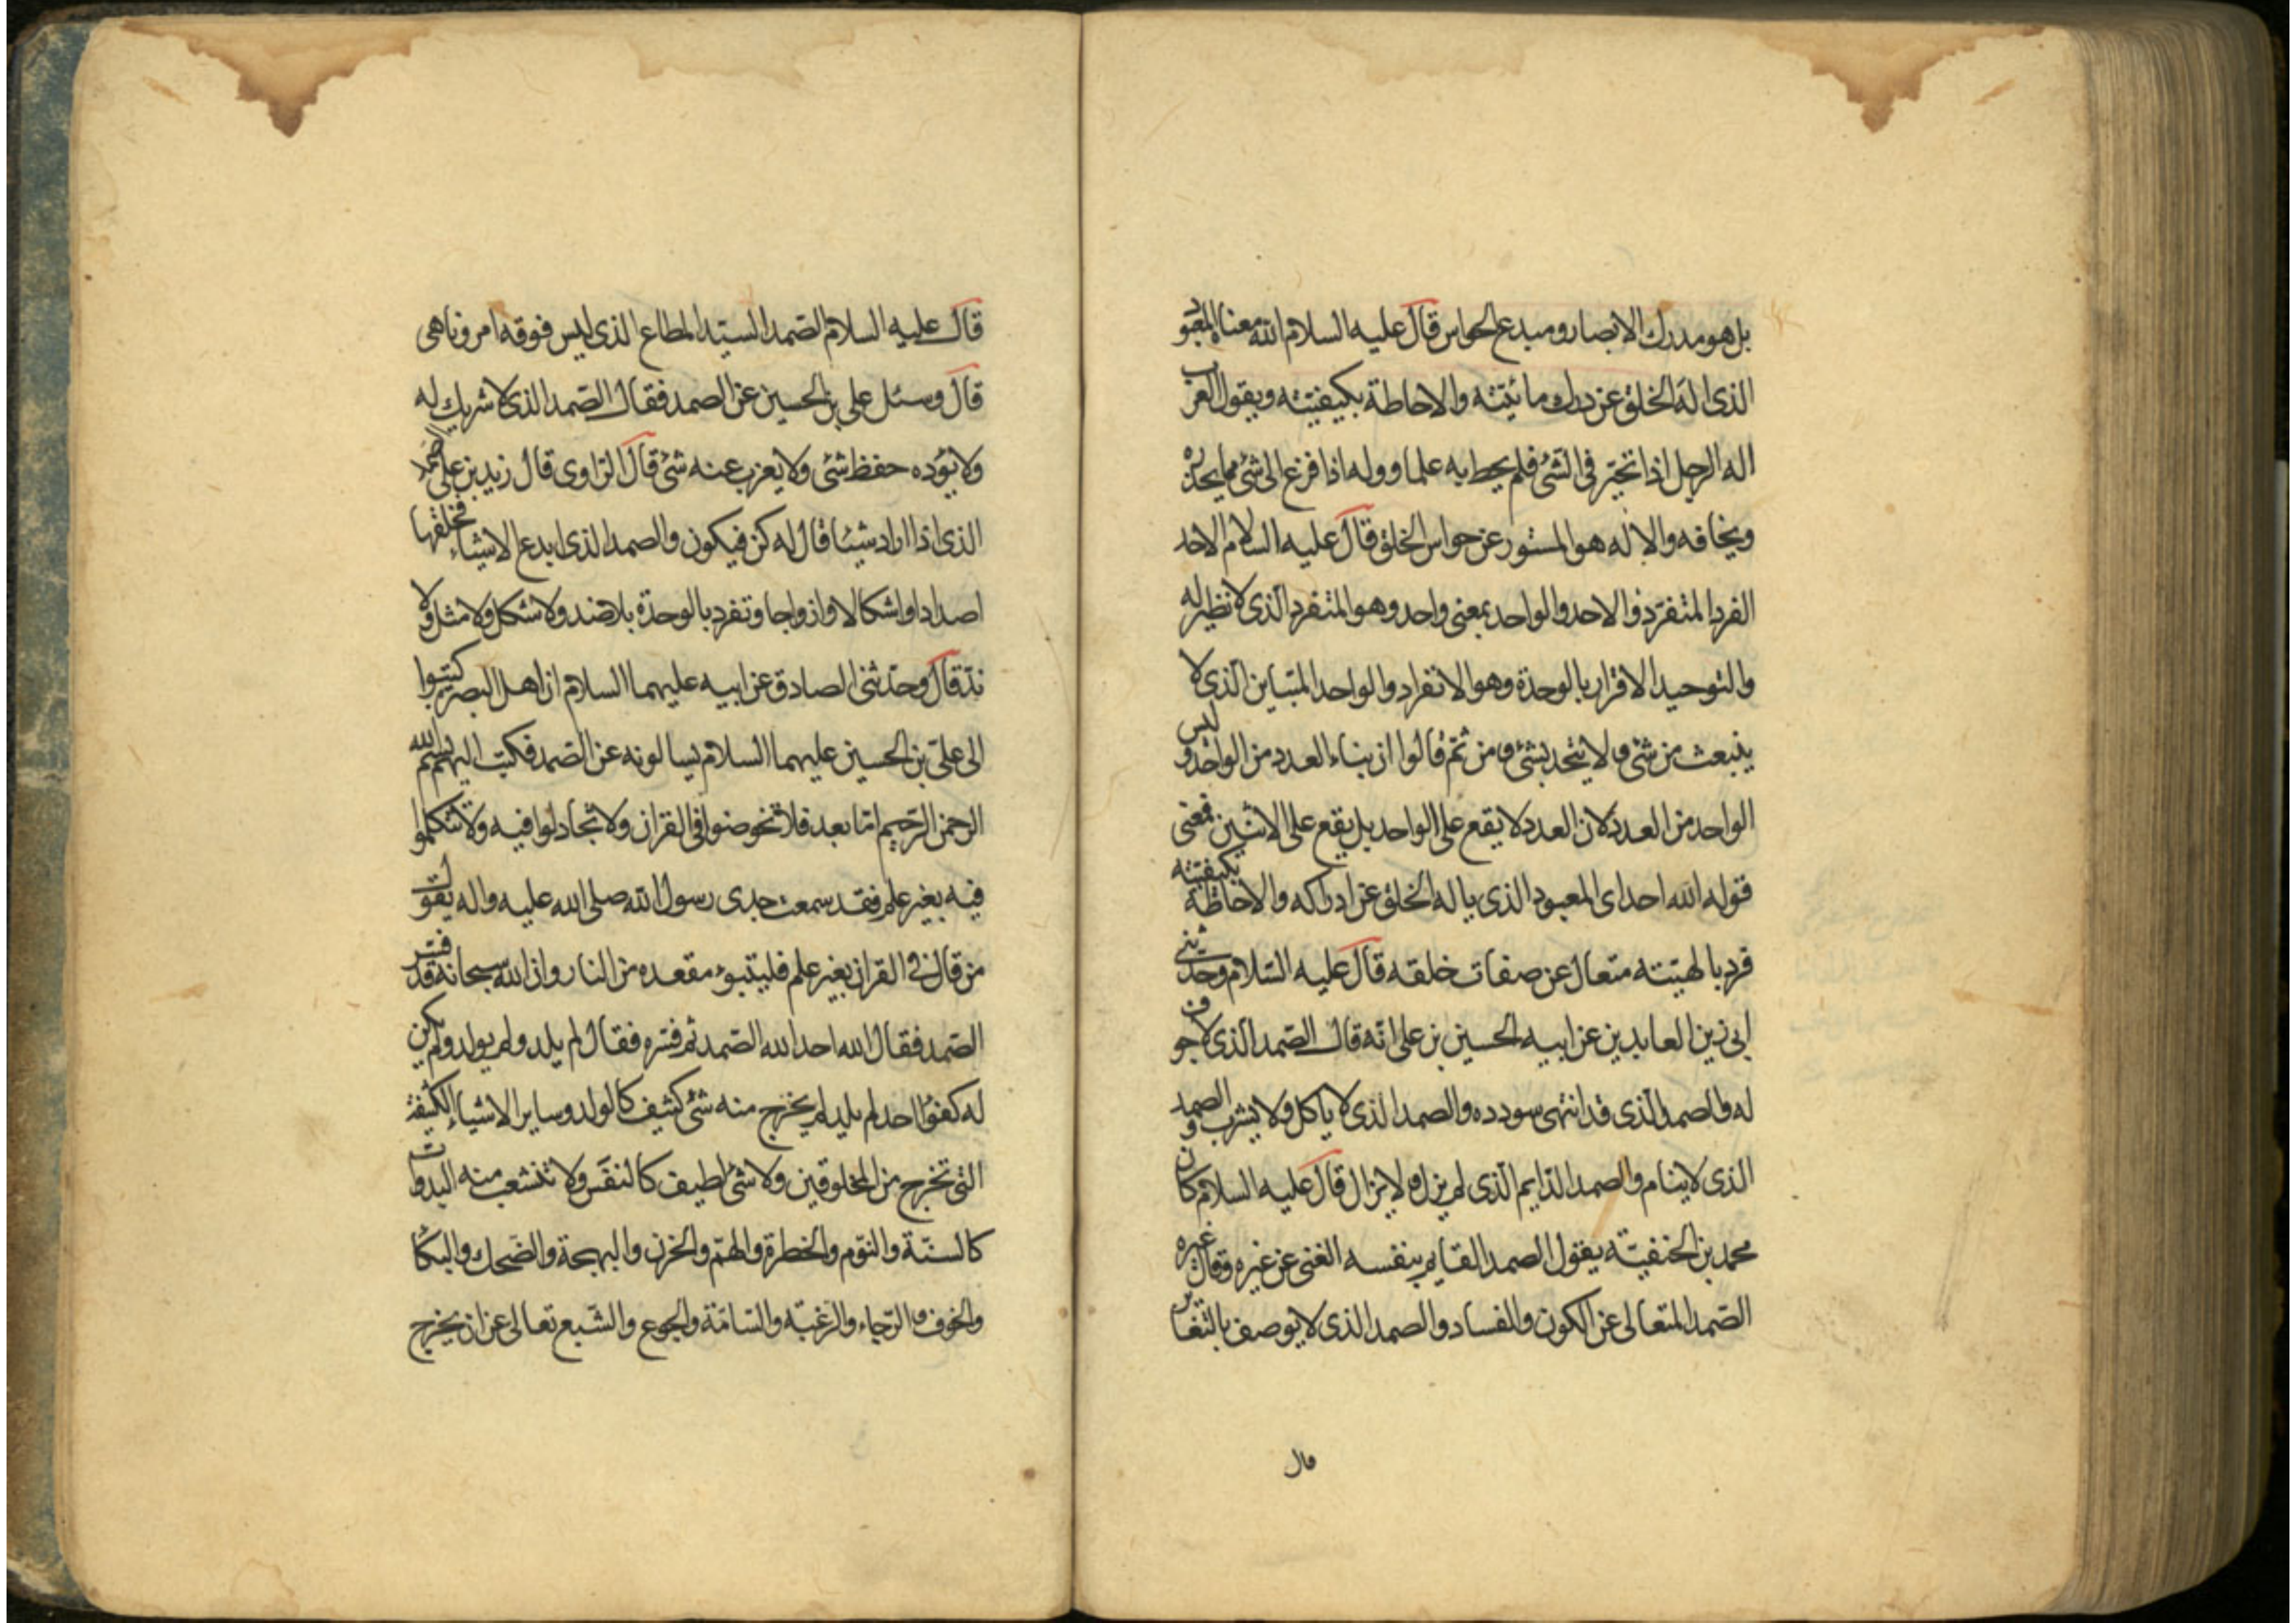 بل هو مدرك الابصار ومبدع الحواس قال عليه السلام الله معناه المعبود
الذى اله الخلق عن درك مائيته والاحاطة بكيفيته ويقول العرب
اله الرجل اذا تحير فى الشئ فلم يحط به علما ووله اذا فزع الى شئ مما يحذره
ويخافه والاله هو المستور عن حواس الخلق قال عليه السلام الاحد
الفرد المتفرد والاحد والواحد بمعنى واحد وهو المتفرد الذى لا نظير له
والتوحيد الاقرار بالوحدة وهو الانفراد والواحد المتباين الذى لا
ينبعث من شئ ولا يتحد بشئ ومن ثم قالوا ان بناء العدد من الواحد وليس
الواحد من العدد لان العدد لا يقع على الواحد بل يقع على الاثنين فمعنى
قوله الله احد اى المعبود الذى ياله الخلق عن ادراكه والاحاطة بكيفيته
فرد بالهيته متعال عن صفات خلقه قال عليه السلام وحدثنى
ابى زين العابدين عن ابيه الحسين بن على انه قال الصمد الذى لا جوف
له والصمد الذى قد انتهى سودده والصمد الذى لا ياكل ولا يشرب والصمد
الذى لا ينام والصمد الدايم الذى لم يزل ولا يزال قال عليه السلام كان
محمد بن الحنفية يقول الصمد القايم بنفسه الغنى عن غيره وقال غيره
الصمد المتعالى عن الكون والفساد والصمد الذى لا يوصف بالتغاير
قال
قال عليه السلام الصمد السيد المطاع الذى ليس فوقه امر وناهى
قال وسئل على بن الحسين عن الصمد فقال الصمد الذى لا شريك له
ولا يؤده حفظ شئ ولا يعزب عنه شئ قال الراوى قال زيد بن على الصمد
الذى اذا اراد شيئا قال له كن فيكون والصمد الذى ابدع الاشياء فخلقها
اضدادا واشكالا وازواجا وتفرد بالوحدة بلا ضد ولا شكل ولا مثل ولا
ند قال وحدثنى الصادق عن ابيه عليهما السلام ان اهل البصرة كتبوا
الى على بن الحسين عليهما السلام يسالونه عن الصمد فكتب اليهم بسم الله
الرحمن الرحيم اما بعد فلا تخوضوا فى القران ولا تجادلوا فيه ولا تتكلموا
فيه بغير علم فقد سمعت جدى رسول الله صلى الله عليه واله يقول
من قال فى القران بغير علم فليتبوء مقعده من النار وان الله سبحانه قد فسر
الصمد فقال الله احد الله الصمد ثم فسره فقال لم يلد ولم يولد ولم يكن
له كفوا احد لم يلد لم يخرج منه شئ كثيف كالولد وساير الاشياء الكثيفة
التى تخرج من المخلوقين ولا شئ لطيف كالنفس ولا تنشعب منه البدوات
كالسنة والنوم والخطرة والهم والحزن والبهجة والضحك والبكا
والخوف والرجاء والرغبة والسامة والجوع والشبع تعالى عن ان يخرج